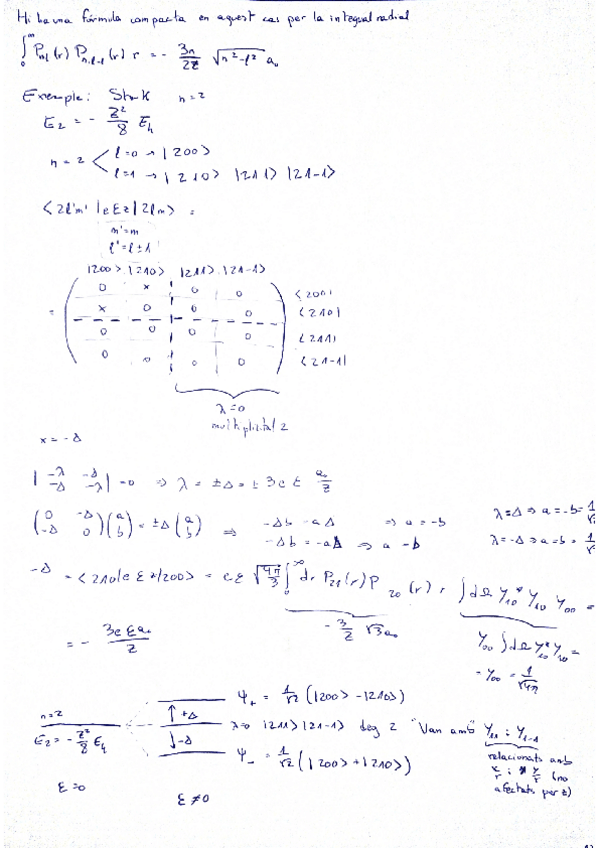 Hi ha una fórmula compacta en aquest cas per la integral radial
∫₀^∞ P_nl(r) P_n,l-1(r) r = - 3n/2Z √(n²-l²) a₀
Exemple: Stark n=2
E₂ = - Z²/8 E_h
n=2 < l=0 → |200>
l=1 → |210> |211> |21-1>
<2l'm'|eƐz|2lm> =
m'=m
l'=l±1
|200> |210> |211> |21-1>
0 x 0 0 <200|
= x 0 0 0 <210|
0 0 0 0 <211|
0 0 0 0 <21-1|
λ=0
multiplicitat 2
x = -Δ
| -λ -Δ ; -Δ -λ | = 0 ⇒ λ = ±Δ = ± 3eƐ a₀/Z
( 0 -Δ ; -Δ 0 )( a ; b ) = ±Δ ( a ; b ) ⇒ -Δb = aΔ ⇒ a = -b
-Δb = -aΔ ⇒ a = b
λ=Δ ⇒ a=-b= 1/√
λ=-Δ ⇒ a=b= 1/√
-Δ = <210|eƐz|200> = eƐ √(4π/3) ∫₀^∞ dr P₂₁(r) P₂₀(r) r ∫dΩ Y₁₀* Y₁₀ Y₀₀ =
- 3/Z √3 a₀
Y₀₀ ∫dΩ Y₁₀* Y₁₀ =
= Y₀₀ = 1/√4π
= - 3eƐa₀/Z
ψ₊ = 1/√2 (|200> - |210>)
n=2
↑+Δ
λ=0 |211> |21-1> deg 2 "Van amb" Y₁₁ i Y₁₋₁
E₂ = - Z²/8 E_h
↓-Δ
ψ₋ = 1/√2 (|200> + |210>)
relacionats amb
x/r i y/r (no
afectats per z)
Ɛ=0
Ɛ≠0